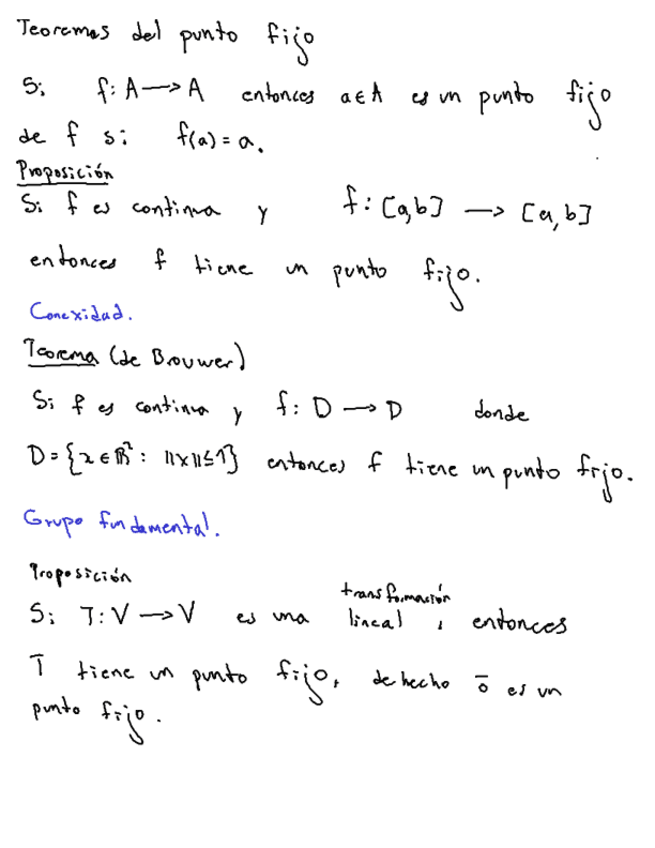 Teoremas del punto fijo
Si f: A → A entonces a ∈ A es un punto fijo
de f si f(a) = a.
Proposición
Si f es continua y f: [a,b] → [a,b]
entonces f tiene un punto fijo.
Conexidad.
Teorema (de Brouwer)
Si f es continua y f: D → D donde
D = {x ∈ ℝ²: ||x|| ≤ 1} entonces f tiene un punto fijo.
Grupo fundamental.
Proposición
Si T: V → V es una transformación lineal, entonces
T tiene un punto fijo, de hecho ō es un
punto fijo.